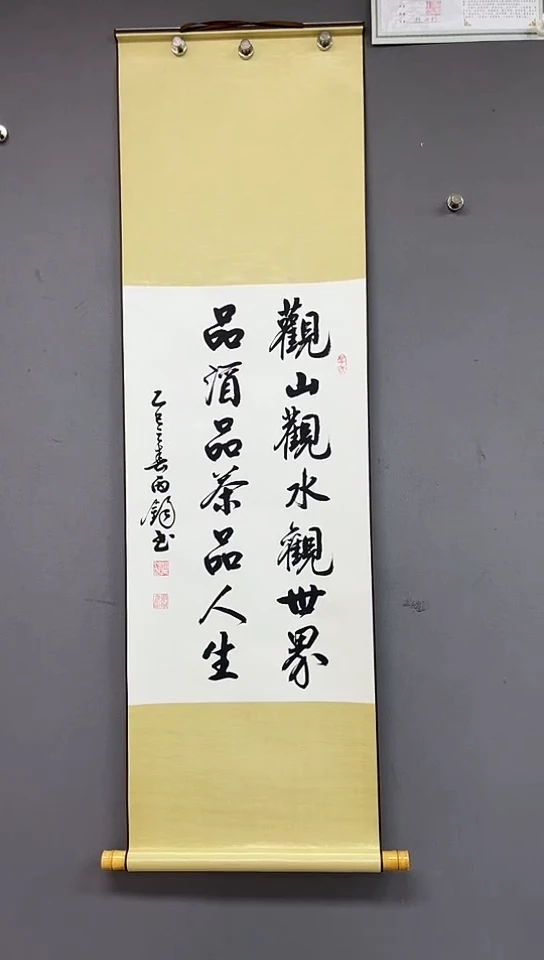 觀山觀水觀世界
品酒品茶品人生
乙巳之春雨鋼书